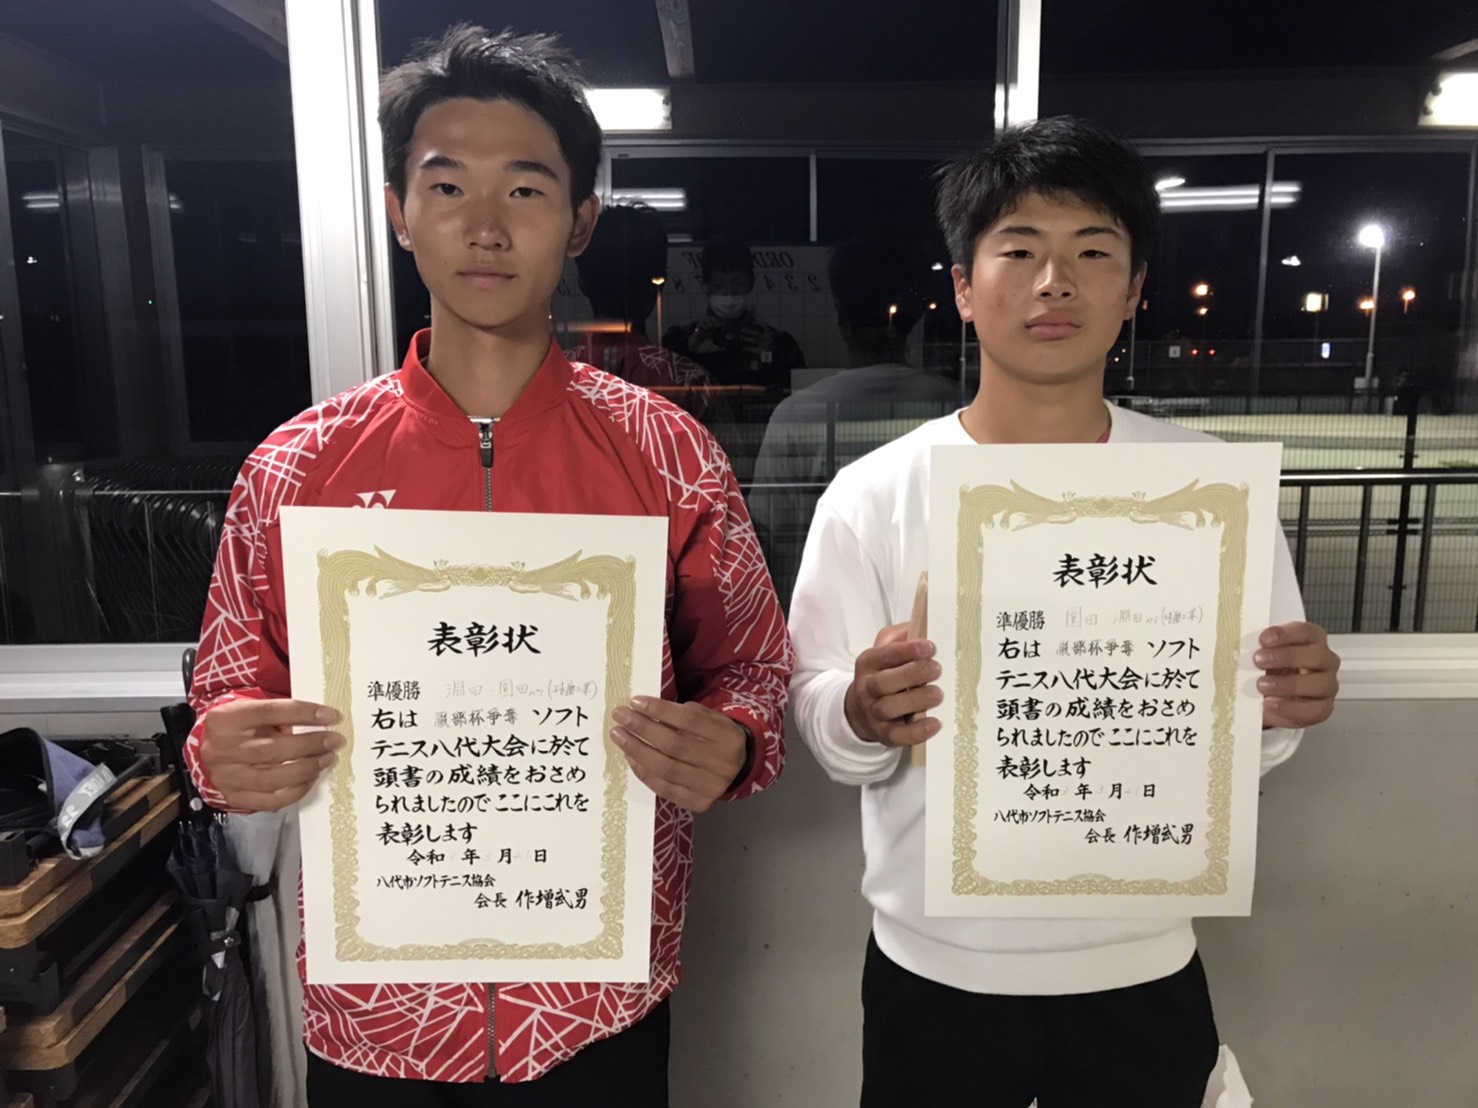 表彰状
準優勝 淵田・園田ペア(球磨工業)
右は 服部杯争奪 ソフト
テニス八代大会に於て
頭書の成績をおさめ
られましたので ここにこれを
表彰します
令和 年 月 日
八代市ソフトテニス協会
会長 作増武男
表彰状
準優勝 園田・淵田ペア(球磨工業)
右は 服部杯争奪 ソフト
テニス八代大会に於て
頭書の成績をおさめ
られましたので ここにこれを
表彰します
令和 年 月 日
八代市ソフトテニス協会
会長 作増武男